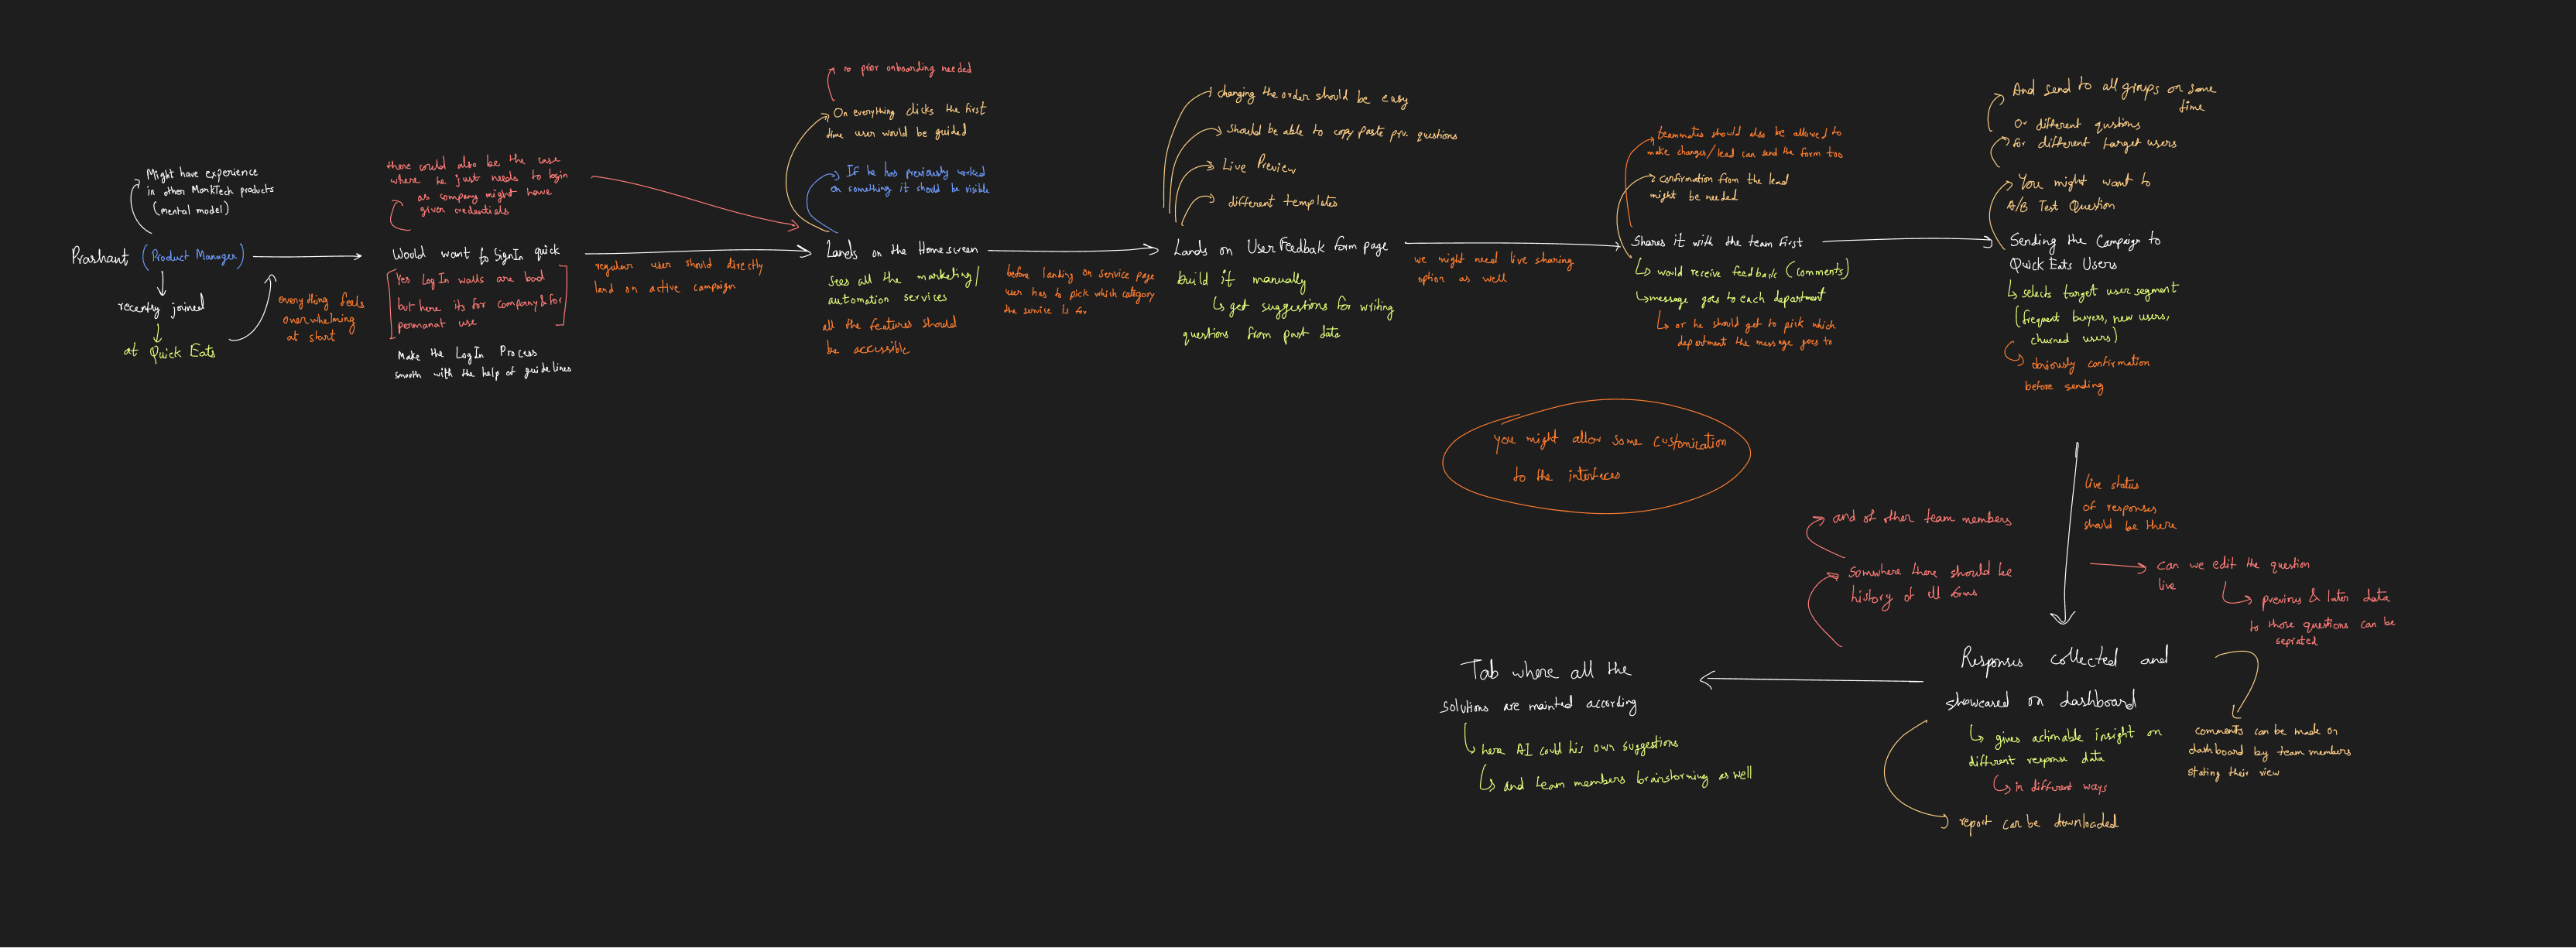 Might have experience
in other MarkTech products
(mental model)
Prashant (Product Manager)
recently joined
at Quick Eats
everything feels
overwhelming
at start
there could also be the case
where he just needs to login
as company might have
given credentials
Would want to SignIn quick
Yes LogIn walls are bad
but here its for company & for
permanat use
Make the LogIn Process
smooth with the help of guidelines
regular user should directly
land on active campaign
no prior onboarding needed
On everything clicks the first
time user would be guided
If he has previously worked
on something it should be visible
Lands on the Homescreen
sees all the marketing/
automation services
all the features should
be accessible
before landing on service page
user has to pick which category
the service is for
changing the order should be easy
Should be able to copy paste prv. questions
Live Preview
different templates
Lands on User Feedbak form page
build it manually
get suggestions for writing
questions from past data
we might need live sharing
option as well
teammates should also be allowed to
make changes/lead can send the form too
confirmation from the lead
might be needed
Shares it with the team first
would receive feedback (comments)
message goes to each department
or he should get to pick which
department the message goes to
And send to all groups on same
time
Or different qustions
for different target users
You might want to
A/B Test Question
Sending the Campaign to
Quick Eats Users
selects target user segment
(frequent buyers, new users,
churned users)
obviously confirmation
before sending
you might allow some customization
to the interfaces
live status
of responses
should be there
can we edit the question
live
previous & later data
to those questions can be
seprated
and of other team members
Somwhere there should be
history of all forms
Responses collected and
showcased on dashboard
gives actionable insight on
different response data
in different ways
report can be downloaded
comments can be made on
dashboard by team members
stating their view
Tab where all the
solutions are mainted according
here AI could his own suggestions
and team members brainstorming as well